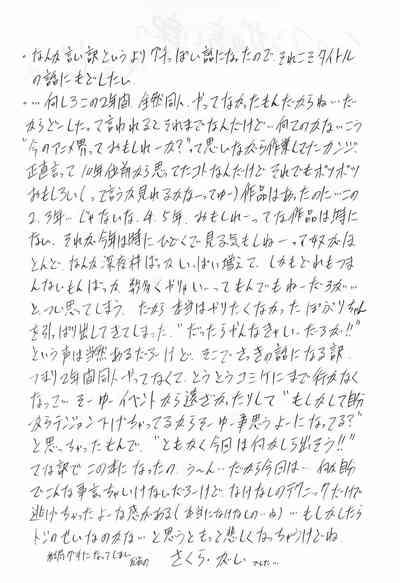 ・なんか言い訳というよりグチっぽい話になったので、それこそタイトル
の話にもどしたい。
・…何しろこの2年間、全然同人やってなかったもんだからね…だ
からどーしたって言われるとそれまでなんだけど…何てのかな…こう
"今のアニメ界っておもしれーか?"って思いながら作業してたカンジ。
正直言って10年位前から思ってたコトなんだけどそれでもポツポツ
おもしろい(って言うか見れるかなーってゆー)作品はあったのに…この
2、3年…じゃないな、4、5年、おもしれーってな作品は特に
ない。それが今年は特にひどくて見る気もしねーって奴がほ
とんど、なんか深夜枠ばっかいっぱい増えて、しかもどれもつま
んないもんばっか、数多くやりゃいーってもんでもねーだろが…
と、つい思ってしまう。だから本当はやりたくなかった
を引っぱり出してきてしまった。"だったらやんなきゃいーだろが!!"
という声は当然あるだろーけど、そこでさっきの話になる訳。
つまり2年間同人やってなくて、とうとうコミケにまで行かなく
なってい そーゆーイベントから遠ざかったりして"もしかして自分
からテンション下げちゃってるからそーゆー事思うよーになってる?"
と思っちゃったもんで、"ともかく今回は何かしら出そう!!"
てな訳でこの本になったの。うーん…だから今回は…何か自分
でこんな事言っちゃいけないだろーけど、なけなしのテクニックだけで
逃げちゃったよーな感がある(本当になけなしの…ね)…もしかしたら
トシのせいなのかな…と思うともっと悲しくなっちゃうけどね。
結局グチになってしまい 反省の さくら・がし でした…